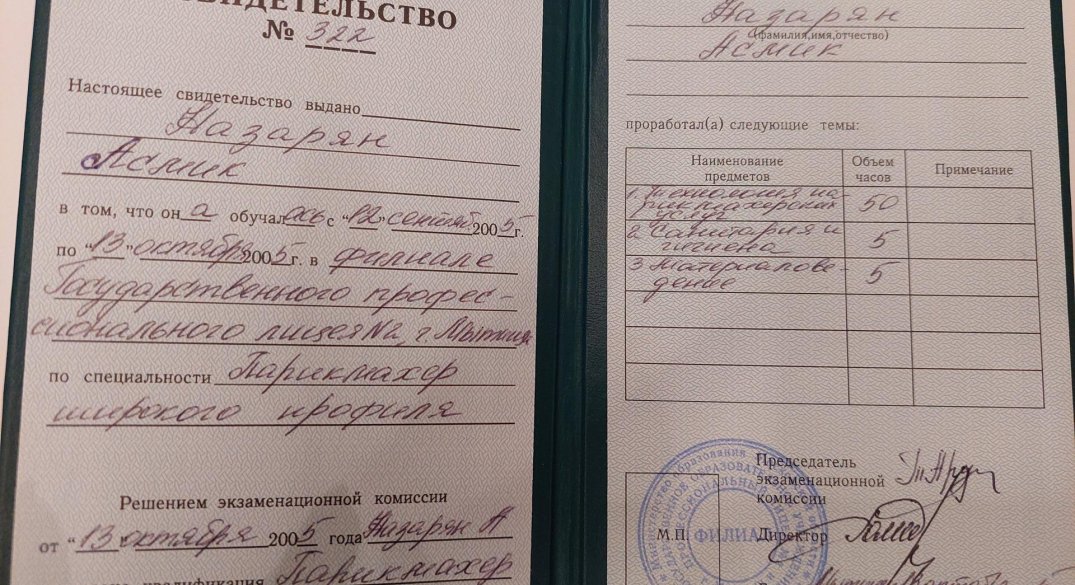 СВИДЕТЕЛЬСТВО
№ 322
Настоящее свидетельство выдано
Назарян
Асмик
в том, что он а обучалась с "12" сентяб 2005г.
по "13" октября 2005г. в филиале
Государственного профес-
сионального лицея №2, г. Мытищи
по специальности Парикмахер
широкого профиля
Решением экзаменационной комиссии
от "13" октября 2005 года Назарян А
квалификация Парикмахер
Назарян
(фамилия,имя,отчество)
Асмик
проработал(а) следующие темы:
Наименование предметов Объем часов Примечание
1. Технология па-
рикмахерских 50
услуг
2. Санитария и 5
гигиена
3 Материалове- 5
дение
Председатель
экзаменационной
комиссии
М.П. Директор
ФИЛИАЛ